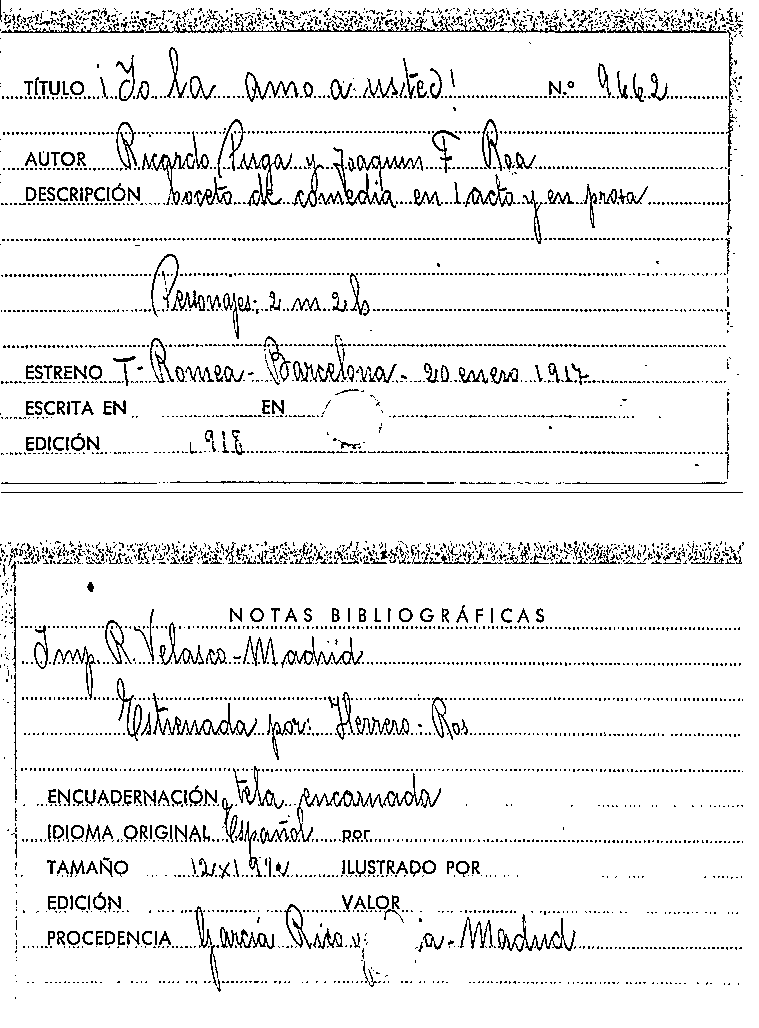 TÍTULO ¡Yo la amo a usted! N.º 9662
AUTOR Ricardo Puga y Joaquin F Roa
DESCRIPCIÓN boceto de comedia en 1 acto y en prosa
Personajes: 2 m 2 h
ESTRENO T- Romea - Barcelona - 20 enero 1917
ESCRITA EN EN
EDICIÓN 1918
NOTAS BIBLIOGRÁFICAS
Imp R. Velasco - Madrid
Estrenada por: Herrero - Ros
ENCUADERNACIÓN tela encarnada
IDIOMA ORIGINAL Español por
TAMAÑO ILUSTRADO POR
EDICIÓN VALOR
PROCEDENCIA García Rico y - Madrid